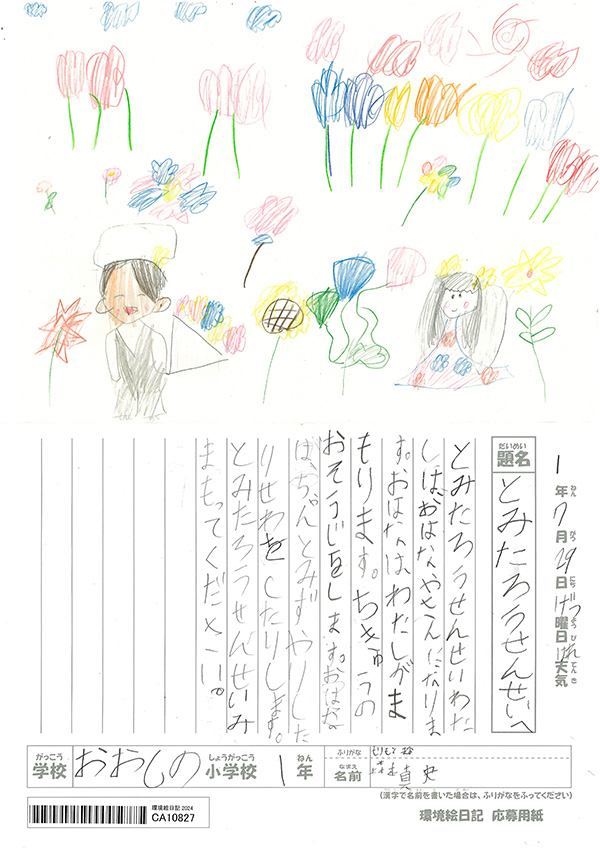 1年7月29日げつ曜日はれ天気
ねん がつ にち ようび てんき
だいめい
題名
とみたろうせんせいへ
とみたろうせんせいわた
しは、おはなやさんになりま
す。おはなはわたしがま
もります。ちきゅうの
おそうじをします。おはなの
は、ちゃんとみずやりした
りせわをしたりします。
とみたろうせんせいみ
まもってください。
がっこう
学校
おおしの
しょうがっこう
小学校
1
ねん
年
ふりがな
なまえ
名前
(漢字で名前を書いた場合は、ふりがなをふってください)
環境絵日記 応募用紙
環境絵日記 2024
CA10827